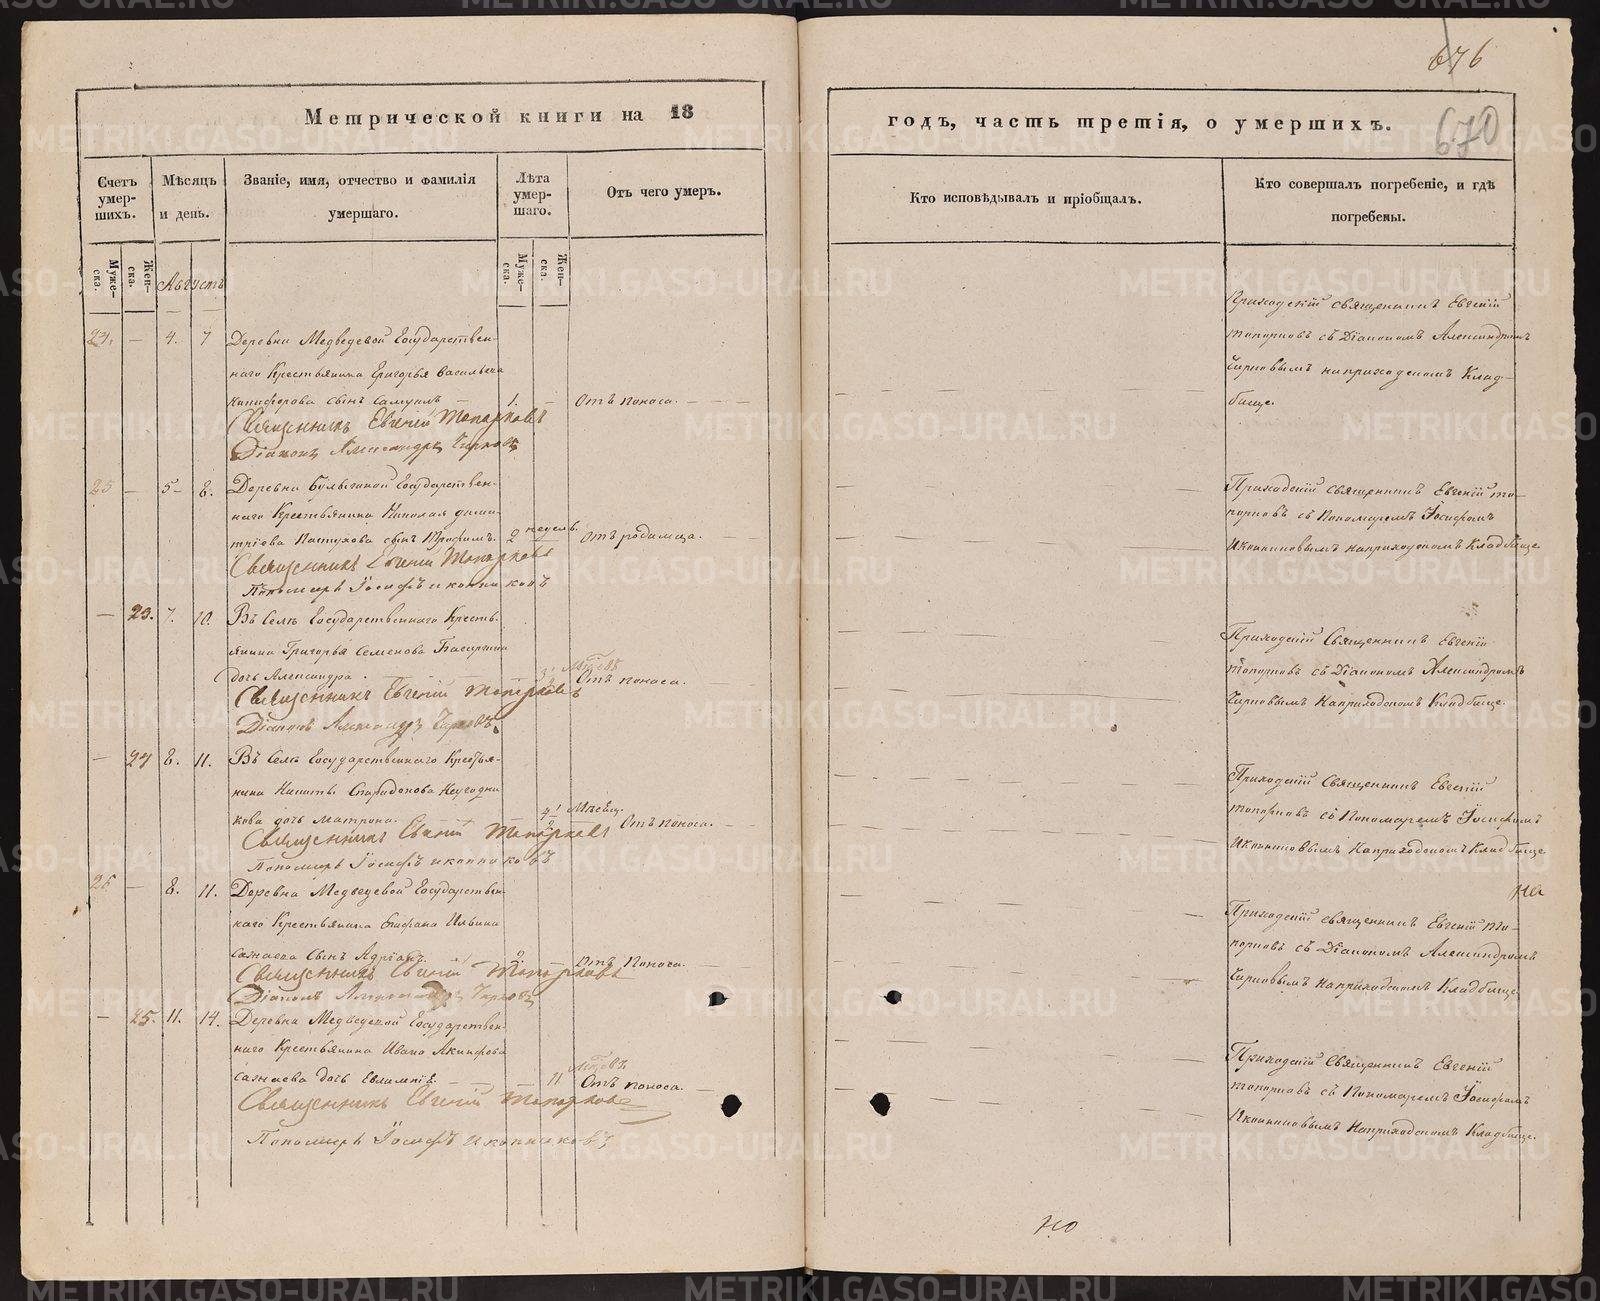 676
670
Метрической книги на 18
годъ, часть третія, о умершихъ.
Счетъ умер-шихъ.
Мѣсяцъ и день.
Званіе, имя, отчество и фамилія умершаго.
Лѣта умер-шаго.
Отъ чего умеръ.
Кто исповѣдывалъ и пріобщалъ.
Кто совершалъ погребеніе, и гдѣ погребены.
Муже-ска.
Жен-ска.
Муже-ска.
Жен-ска.
Августъ
4. 7 Деревни Медведевой Государствен-
наго Крестьянина Григорья Васильева
сынъ Самуилъ 1. Отъ поноса.
Священникъ Евгеній Топорковъ
Діаконъ Александръ
Приходскій священникъ Евгеній
Топорковъ съ Діакономъ Александромъ
на приходскомъ Клад-
бище.
5 8. Деревни Государствен-
наго Крестьянина Николая Дими-
тріева Пастухова сынъ Трофимъ. 2 недель. Отъ родимца.
Священникъ Евгеній Топорковъ
Пономарь Іосифъ Иконниковъ
Приходскій священникъ Евгеній То-
порковъ съ Пономаремъ Іосифомъ
Иконниковымъ на приходскомъ Кладбище.
23. 7. 10. Въ Селѣ Государственного Кресть-
янина Григорья Семенова
дочь Александра. Отъ поноса.
Священникъ Евгеній Топорковъ
Діаконъ Александръ
Приходскій Священникъ Евгеній
Топорковъ съ Діакономъ Александромъ
на приходскомъ Кладбище.
24 8. 11. Въ Селѣ Государственнаго Крестья-
нина Никиты Спиридонова
дочь Матрона. Отъ поноса.
Священникъ Евгеній Топорковъ
Пономарь Іосифъ Иконниковъ
Приходскій Священникъ Евгеній
Топорковъ съ Пономаремъ Іосифомъ
Иконниковымъ на приходскомъ Кладбище
25 8. 11. Деревни Медведевой Государствен-
наго Крестьянина Епифана Ильина
Сажаева Сынъ Адріанъ. Отъ поноса.
Священникъ Евгеній Топорковъ
Діаконъ
Приходскій священникъ Евгеній То-
порковъ съ Діакономъ Александромъ
на приходскомъ Кладбище
25. 11. 14. Деревни Медведевой Государствен-
наго Крестьянина Ивана Акинфова
Сажаева дочь Евлампія. 11 Отъ поноса.
Священникъ Евгеній Топорковъ
Пономарь Іосифъ Иконниковъ
Приходскій Священникъ Евгеній
Топорковъ съ Пономаремъ Іосифомъ
Иконниковымъ на приходскомъ Кладбище.
METRIKI.GASO-URAL.RU